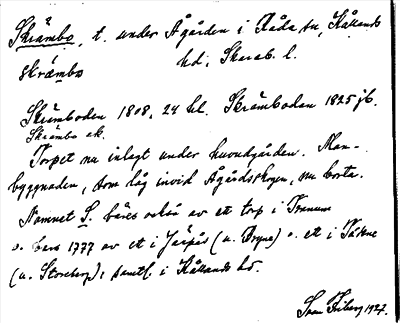 Skråmbo, t. under Ågården i Råda sn, Kållands
skråmbo hd, Skarab. l.
Skråmboden 1808, 24 hl. Skråmboden 1825 jb.
Skråmbo ek.
Torpet nu inlagt under huvudgården. Man-
byggnaden, som låg invid Ågårdsskogen, nu borta.
Namnet S. bäres också av et torp i Tranum
o. bars 1777 av et i Järpås (u. Bryna) o. et i Täkne
(u. Storeberg), samtl. i Kållands hd.
Sven Friberg 1927.